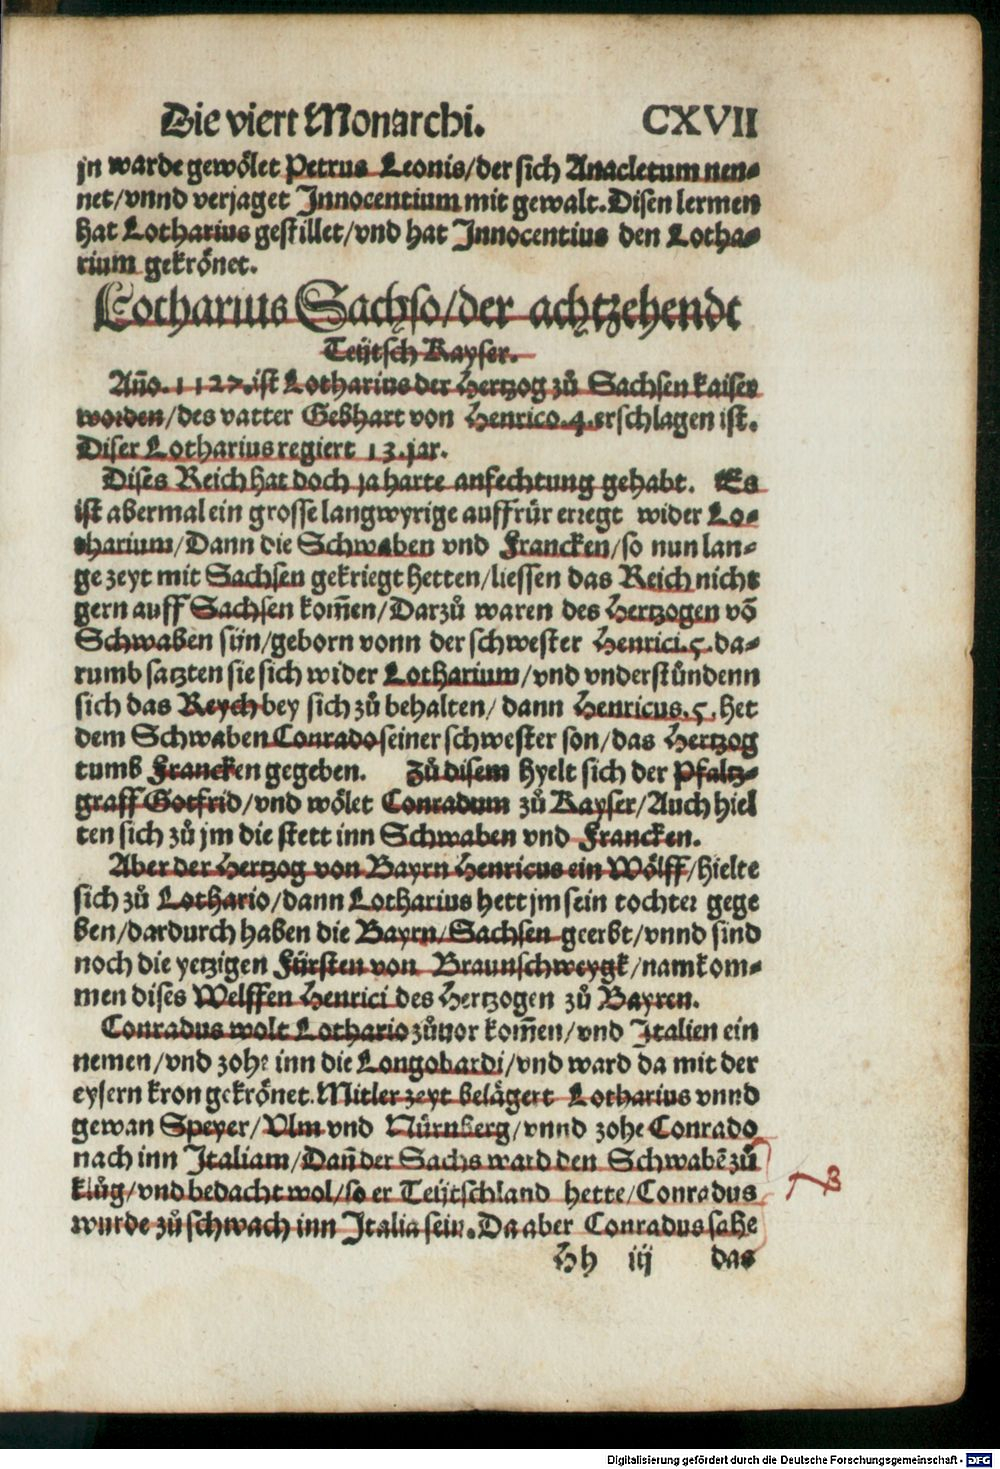 Die viert Monarchi. CXVII
jn warde gewölet Petrus Leonis/der sich Anacletum nen-
net/vnnd verjaget Innocentium mit gewalt. Disen lermen
hat Lotharius gestillet/vnd hat Innocentius den Lotha-
rium gekrönet.
Lotharius Sachso/der achtzehendt
Teütsch Kayser.
Año. 1127. ist Lotharius der Hertzog zů Sachsen kaiser
worden/des vatter Gebhart von Henrico. 4. erschlagen ist.
Diser Lotharius regiert 13. jar.
Dises Reich hat doch ja harte anfechtung gehabt. Es
ist abermal ein grosse langwyrige auffrůr erregt wider Lo-
tharium/Dann die Schwaben vnd Francken/so nun lan-
ge zeyt mit Sachsen gekriegt hetten/liessen das Reich nicht
gern auff Sachsen kom̄en/Darzů waren des Hertzogen vō
Schwaben sün/geborn vonn der schwester Henrici. 5. da-
rumb satzten sie sich wider Lotharium/vnd vnderstündenn
sich das Reych bey sich zů behalten/dann Henricus. 5. het
dem Schwaben Conrado seiner schwester son/das Hertzog
tumb Francken gegeben. Zů disem hyelt sich der Pfaltz-
graff Gotfrid/vnd wölet Conradum zů Kayser/Auch hiel
ten sich zů jm die stett inn Schwaben vnd Francken.
Aber der Hertzog von Bayrn Henricus ein Wölff/hielte
sich zů Lothario/dann Lotharius hett jm sein tochter gege
ben/dardurch haben die Bayrn/Sachsen geerbt/vnnd sind
noch die yetzigen Fürsten von Braunschweygk/namkom-
men dises Welffen Henrici des Hertzogen zů Bayren.
Conradus wolt Lothario zůuor kom̄en/vnd Italien ein
nemen/vnd zohe inn die Longobardi/vnd ward da mit der
eysern kron gekrönet. Mitler zeyt belägert Lotharius vnnd
gewan Speyer/Vlm vnd Nürnberg/vnnd zohe Conrado
nach inn Italiam/Dañ der Sachs ward den Schwabē zů
klůg/vnd bedacht wol/so er Teütschland hette/Conradus
wurde zů schwach inn Italia sein. Da aber Conradus sahe
NB
Hh iij das
Digitalisierung gefördert durch die Deutsche Forschungsgemeinschaft - DFG